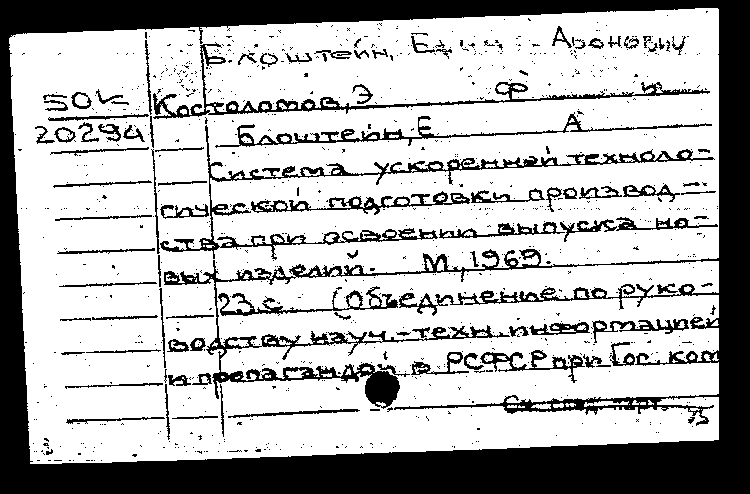 Блоштейн, Един Аронович
50К Костоломов, Э Ф и
20294 Блоштейн, Е А
Система ускоренной техноло-
гической подготовки производ-
ства при освоении выпуска но-
вых изделий. М., 1969.
23 с. (Объединение по руко-
водству науч.-техн. информацией
и пропагандой в РСФСР при Гос. ком
См. след. карт.